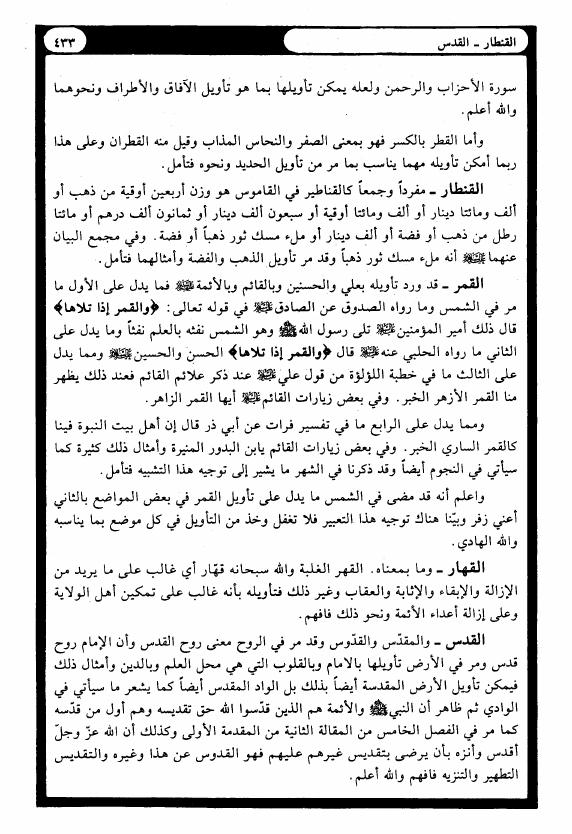 القنطار ـ القدس
٤٣٣
سورة الأحزاب والرحمن ولعله يمكن تأويلها بما هو تأويل الآفاق والأطراف ونحوهما
والله أعلم.
وأما القطر بالكسر فهو بمعنى الصفر والنحاس المذاب وقيل منه القطران وعلى هذا
ربما أمكن تأويله مهما يناسب بما مر من تأويل الحديد ونحوه فتأمل.
القنطار ـ مفرداً وجمعاً كالقناطير في القاموس هو وزن أربعين أوقية من ذهب أو
ألف ومائتا دينار أو ألف ومائتا أوقية أو سبعون ألف دينار أو ثمانون ألف درهم أو مائتا
رطل من ذهب أو فضة أو ألف دينار أو ملء مسك ثور ذهباً أو فضة. وفي مجمع البيان
عنهما ﷺ أنه ملء مسك ثور ذهباً وقد مر تأويل الذهب والفضة وأمثالهما فتأمل.
القمر ـ قد ورد تأويله بعلي والحسنين وبالقائم وبالأئمة ﷺ فما يدل على الأول ما
مر في الشمس وما رواه الصدوق عن الصادق ﷺ في قوله تعالى: ﴿والقمر إذا تلاها﴾
قال ذلك أمير المؤمنين ﷺ تلى رسول الله ﷺ وهو الشمس نفثه بالعلم نفثاً وما يدل على
الثاني ما رواه الحلبي عنه ﷺ قال ﴿والقمر إذا تلاها﴾ الحسن والحسين ﷺ ومما يدل
على الثالث ما في خطبة اللؤلؤة من قول علي ﷺ عند ذكر علائم القائم فعند ذلك يظهر
منا القمر الأزهر الخبر. وفي بعض زيارات القائم ﷺ أيها القمر الزاهر.
ومما يدل على الرابع ما في تفسير فرات عن أبي ذر قال إن أهل بيت النبوة فينا
كالقمر الساري الخبر. وفي بعض زيارات القائم يابن البدور المنيرة وأمثال ذلك كثيرة كما
سيأتي في النجوم أيضاً وقد ذكرنا في الشهر ما يشير إلى توجيه هذا التشبيه فتأمل.
واعلم أنه قد مضى في الشمس ما يدل على تأويل القمر في بعض المواضع بالثاني
أعني زفر وبيّنا هناك توجيه هذا التعبير فلا تغفل وخذ من التأويل في كل موضع بما يناسبه
والله الهادي.
القهار ـ وما بمعناه. القهر الغلبة والله سبحانه قهّار أي غالب على ما يريد من
الإزالة والإبقاء والإثابة والعقاب وغير ذلك فتأويله بأنه غالب على تمكين أهل الولاية
وعلى إزالة أعداء الأئمة ونحو ذلك فافهم.
القدس ـ والمقدّس والقدّوس وقد مر في الروح معنى روح القدس وأن الإمام روح
قدس ومر في الأرض تأويلها بالامام وبالقلوب التي هي محل العلم وبالدين وأمثال ذلك
فيمكن تأويل الأرض المقدسة أيضاً بذلك بل الواد المقدس أيضاً كما يشعر ما سيأتي في
الوادي ثم ظاهر أن النبي ﷺ والأئمة هم الذين قدّسوا الله حق تقديسه وهم أول من قدّسه
كما مر في الفصل الخامس من المقالة الثانية من المقدمة الأولى وكذلك أن الله عزّ وجلّ
أقدس وأنزه بأن يرضى بتقديس غيرهم عليهم فهو القدوس عن هذا وغيره والتقديس
التطهير والتنزيه فافهم والله أعلم.